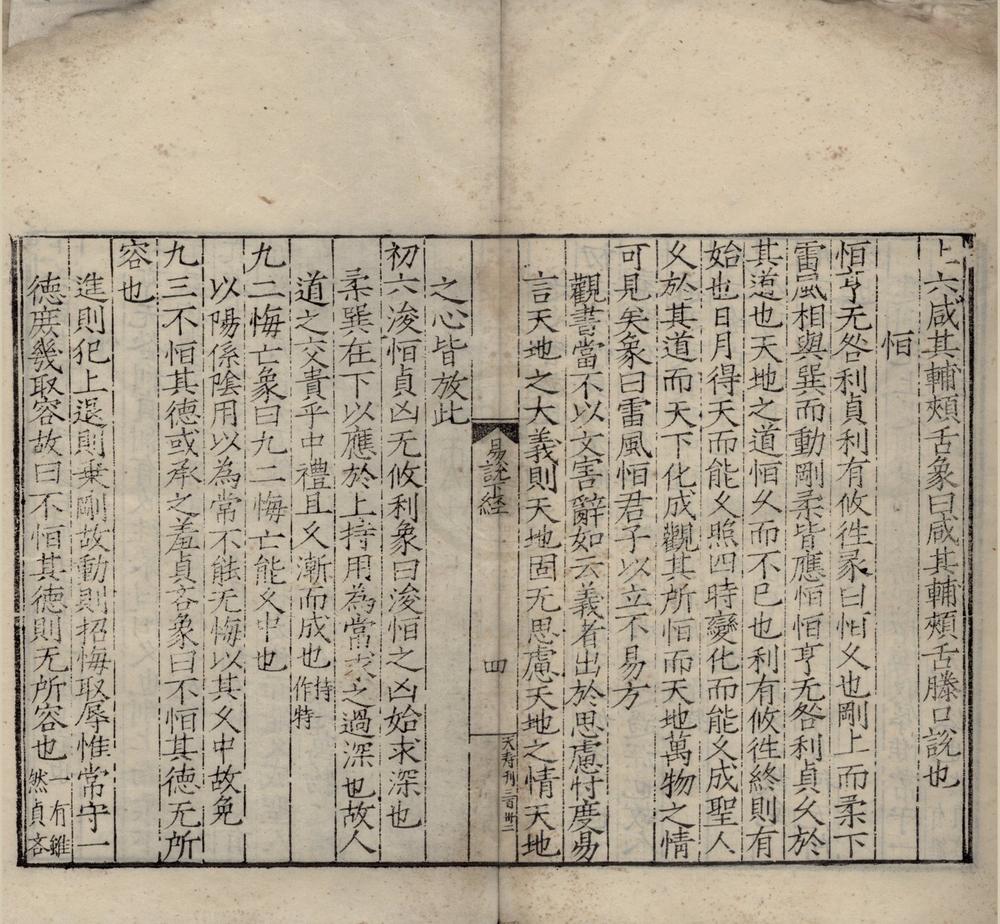 上六咸其輔頰舌象曰咸其輔頰舌滕口說也
恒
恒亨无咎利貞利有攸徃彖曰恒久也剛上而柔下
雷風相與巽而動剛柔皆應恒恒亨无咎利貞久於
其道也天地之道恒久而不已也利有攸徃終則有
始也日月得天而能久照四時變化而能久成聖人
久於其道而天下化成觀其所恒而天地萬物之情
可見矣象曰雷風恒君子以立不易方
觀書當不以文害辭如云義者出於思慮忖度易
言天地之大義則天地固无思慮天地之情天地
易說下經
四
天寿刊
之心皆放此
初六浚恒貞凶无攸利象曰浚恒之凶始求深也
柔巽在下以應於上持用為常求之過深也故人
道之交貴乎中禮且久漸而成也持一作特
九二悔亡象曰九二悔亡能久中也
以陽係陰用以為常不能无悔以其久中故免
九三不恒其德或承之羞貞吝象曰不恒其德无所
容也
進則犯上退則乗剛故動則招悔取辱惟常守一
德庶幾取容故曰不恒其德則无所容也一有雖然貞吝